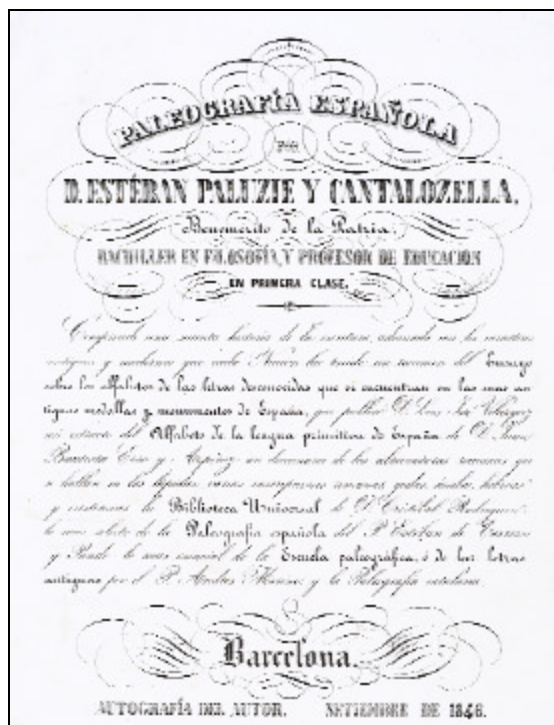 PALEOGRAFÍA ESPAÑOLA
POR
D. ESTÉBAN PALUZIE Y CANTALOZELLA,
Benemérito de la Patria,
BACHILLER EN FILOSOFÍA, Y PROFESOR DE EDUCACION
EN PRIMERA CLASE.
historia de la escritura,
que cada Nacion ha un resumen del Ensayo
sobre los alfabetos de las letras desconocidas que se encuentran en las mas an
tiguas medallas y monumentos de España, que publicó D. Luis José Velazquez
un estracto del Alfabeto de la lengua primitiva de España de D. Juan
Bautista Erro y Azpiroz un diccionario de las abreviaturas romanas que
se hallan en las varias inscripciones
y Biblioteca Universal de D. Cristobal Rodriguez
lo mas selecto de la Paleografia española del P. Esteban de Terreros
y Pando lo mas esencial de la Escuela paleográfica, ó de las letras
antiguas por el P. Andres Merino y la Paleografia catalana.
Barcelona.
AUTOGRAFÍA DEL AUTOR. SETIEMBRE DE 1846.